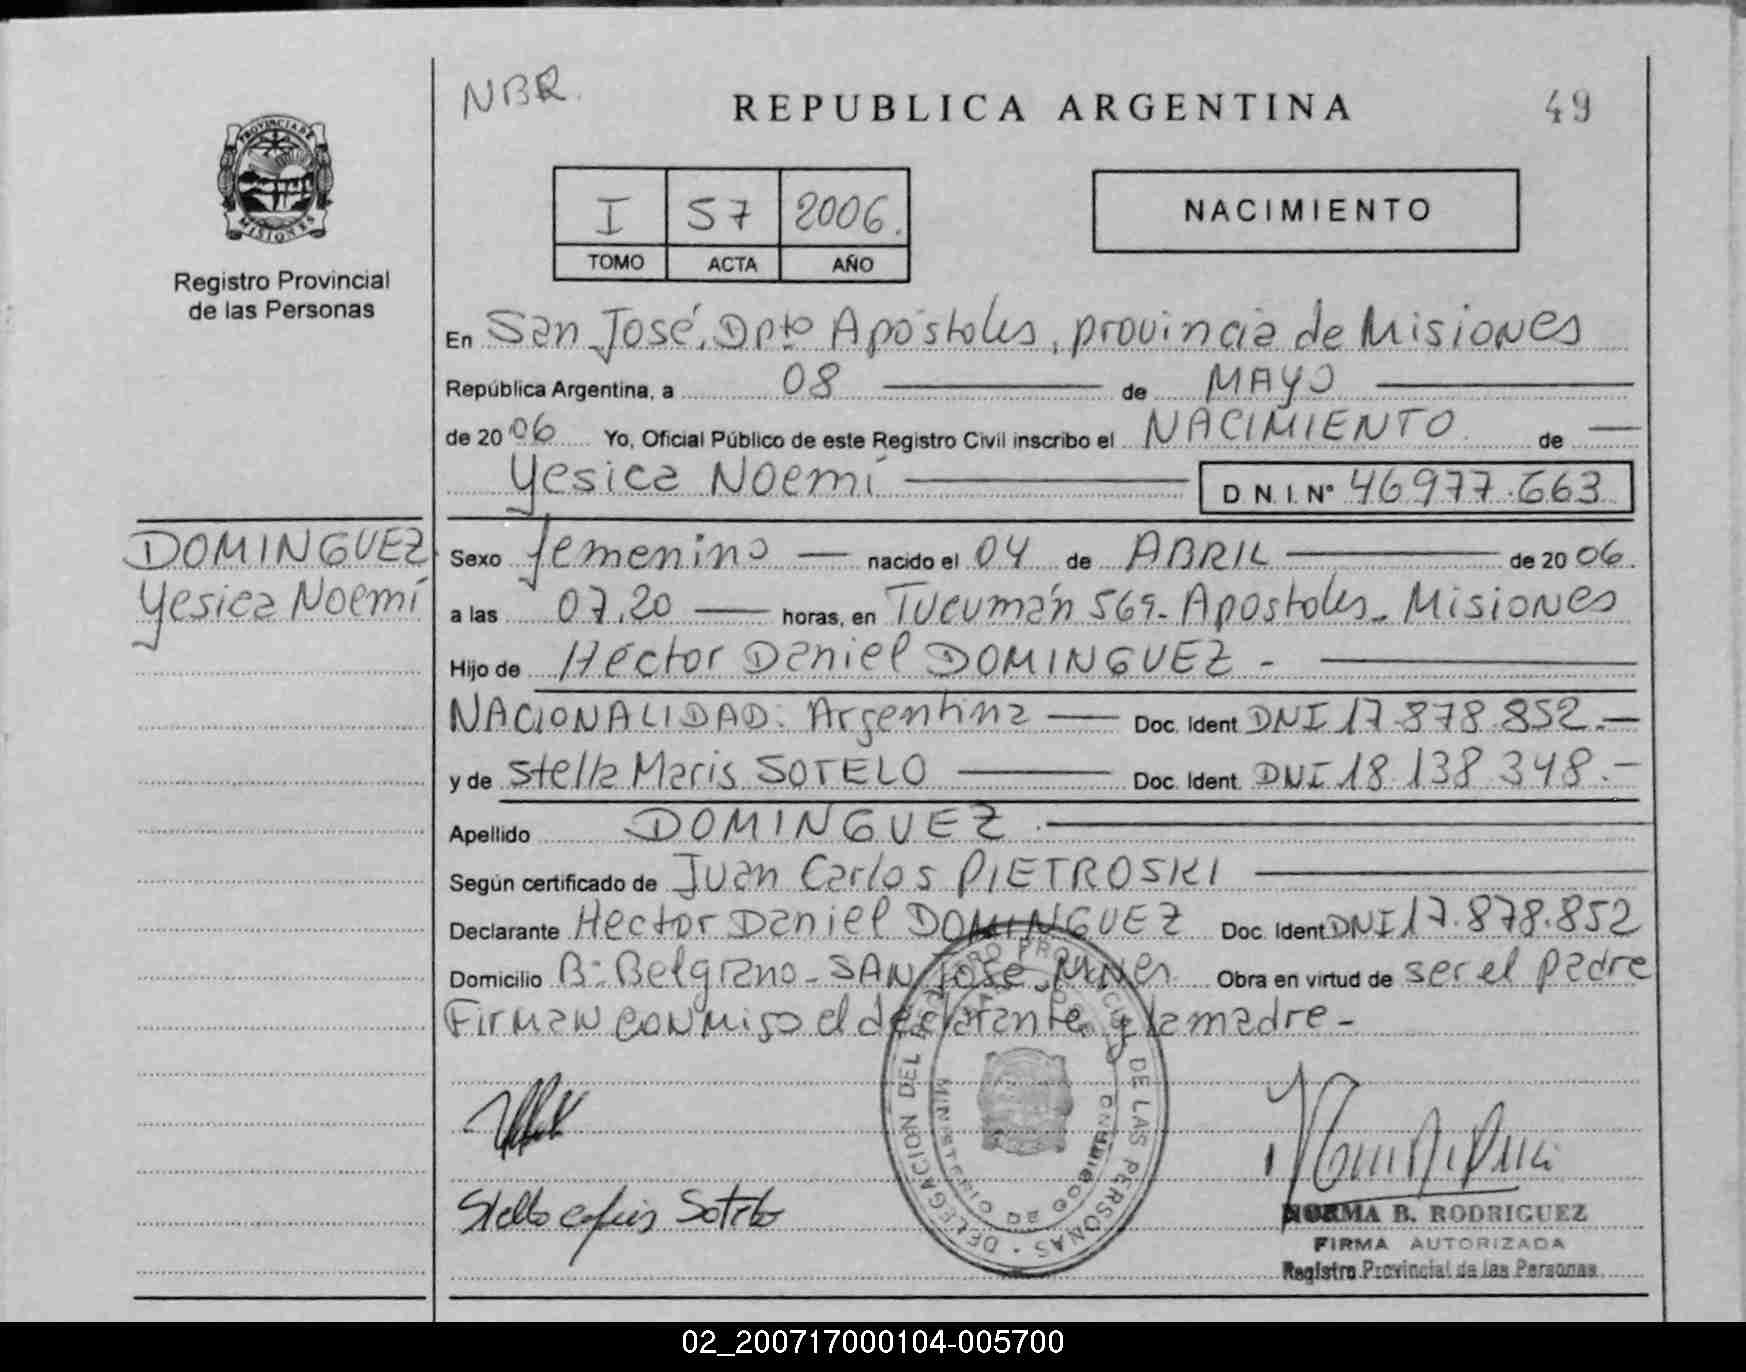 NBR.
REPUBLICA ARGENTINA
49
PROVINCIA DE
MISIONES
Registro Provincial
de las Personas
I 57 2006.
TOMO ACTA AÑO
NACIMIENTO
En San José, Dpto Apóstoles, provincia de Misiones
República Argentina, a 08 de MAYO
de 20 06 Yo, Oficial Público de este Registro Civil inscribo el NACIMIENTO de
Yesica Noemí D N. I. Nº 46977.663
DOMINGUEZ
Yesica Noemí
Sexo femenino nacido el 04 de ABRIL de 20 06.
a las 07,20 horas, en Tucumán 569- Apostoles- Misiones
Hijo de Héctor Daniel DOMINGUEZ -
NACIONALIDAD: Argentina Doc. Ident DNI 17.878.852.-
y de Stella Maris SOTELO Doc. Ident. DNI 18.138.348.-
Apellido DOMINGUEZ.
Según certificado de Juan Carlos PIETROSKI
Declarante Hector Daniel DOMINGUEZ Doc. Ident DNI 17.878.852
Domicilio Bº Belgrano - SAN José, Mnes. Obra en virtud de ser el padre
Firman conmigo el declarante y la madre -
DE LAS PERSONAS - DELEGACION DEL
Stella Maris Sotelo
NORMA B. RODRIGUEZ
FIRMA AUTORIZADA
Registro Provincial de las Personas
02_200717000104-005700